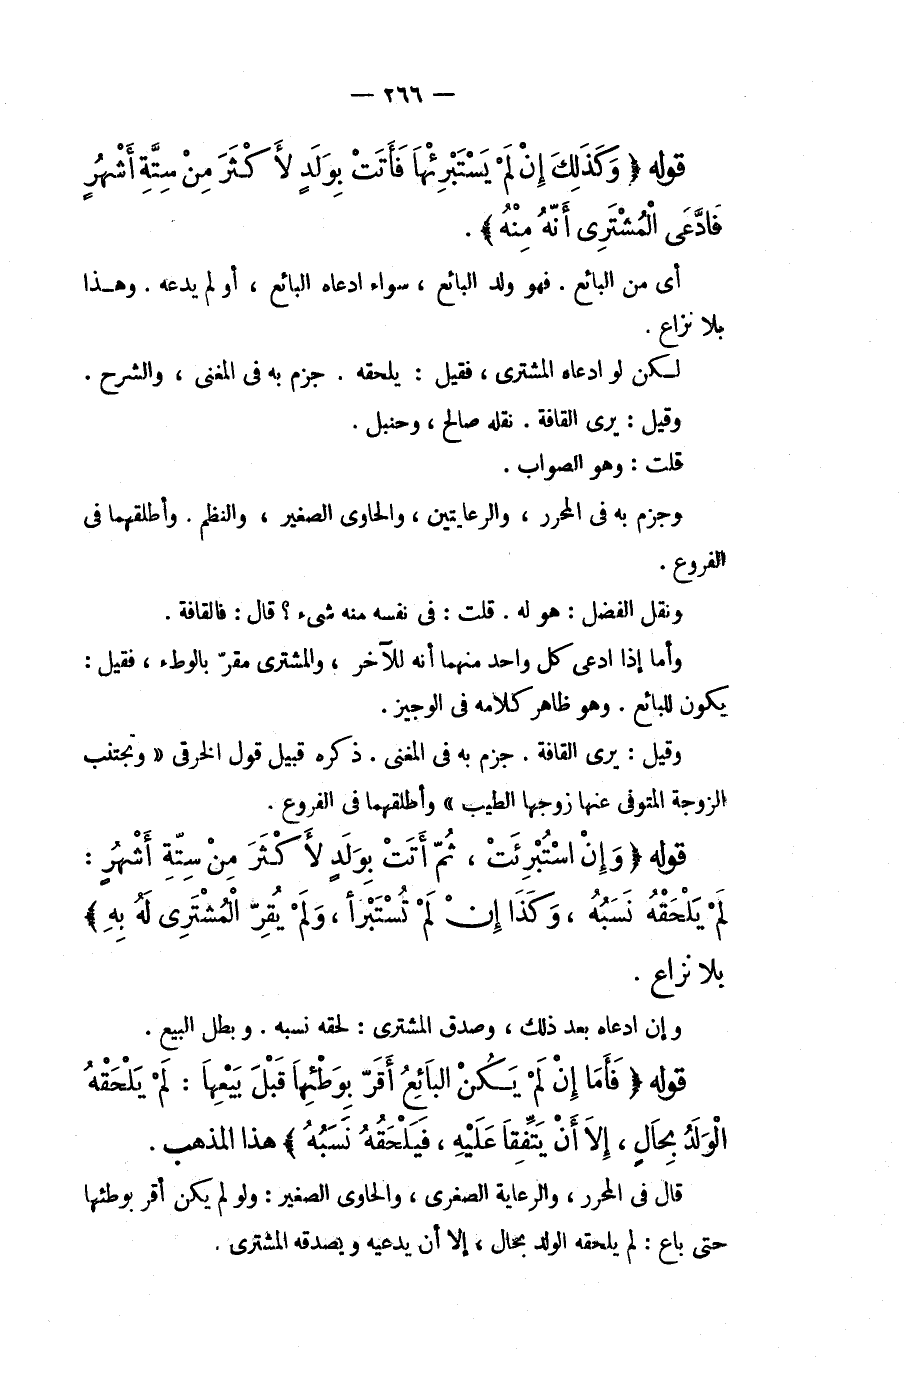 — ٢٦٦ —
قوله ﴿ وَكَذَلِكَ إِنْ لَمْ يَسْتَبْرِئْهَا فَأَتَتْ بِوَلَدٍ لأَكْثَرَ مِنْ سِتَّةِ أَشْهُرٍ
فَادَّعَى الْمُشْتَرِى أَنَّهُ مِنْهُ ﴾ .
أى من البائع . فهو ولد البائع ، سواء ادعاه البائع ، أو لم يدعه . وهـذا
بلا نزاع .
لـكن لو ادعاه المشترى ، فقيل : يلحقه . جزم به فى المغنى ، والشرح .
وقيل : يرى القافة . نقله صالح ، وحنبل .
قلت : وهو الصواب .
وجزم به فى المحرر ، والرعايتين ، والحاوى الصغير ، والنظم . وأطلقهما فى
الفروع .
ونقل الفضل : هو له . قلت : فى نفسه منه شىء ؟ قال : فالقافة .
وأما إذا ادعى كل واحد منهما أنه للآخر ، والمشترى مقرّ بالوطء ، فقيل :
يكون للبائع . وهو ظاهر كلامه فى الوجيز .
وقيل : يرى القافة . جزم به فى المغنى . ذكره قبيل قول الخرقى « وتجتنب
الزوجة المتوفى عنها زوجها الطيب » وأطلقهما فى الفروع .
قوله ﴿ وَإِنْ اسْتُبْرِئَتْ ، ثُمَّ أَتَتْ بِوَلَدٍ لأَكْثَرَ مِنْ سِتَّةِ أَشْهُرٍ :
لَمْ يَلْحَقْهُ نَسَبُهُ ، وَكَذَا إِنْ لَمْ تُسْتَبْرأ ، وَلَمْ يُقِرّ الْمُشْتَرِى لَهُ بِهِ ﴾
بلا نزاع .
وإن ادعاه بعد ذلك ، وصدق المشترى : لحقه نسبه . وبطل البيع .
قوله ﴿ فَأَمَا إِنْ لَمْ يَـكُنْ البَائِعُ أَقَرّ بِوَطْئِهَا قَبْلَ بَيْعِهَا : لَمْ يَلْحَقْهُ
الْوَلَدُ بِحَالٍ ، إِلاَ أَنْ يَتَّفِقَا عَلَيْهِ ، فَيَلْحَقُهُ نَسَبُهُ ﴾ هذا المذهب .
قال فى المحرر ، والرعاية الصغرى ، والحاوى الصغير : ولو لم يكن أقر بوطئها
حتى باع : لم يلحقه الولد بحال ، إلا أن يدعيه ويصدقه المشترى .